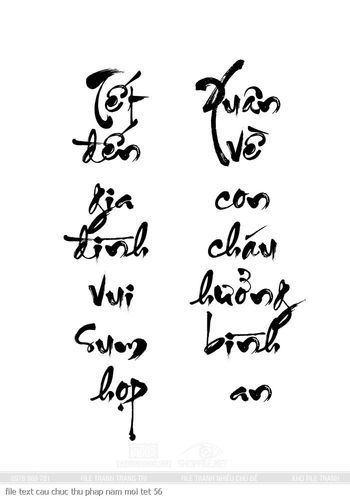 Tết
đến
gia
đình
vui
sum
họp
Xuân
về
con
cháu
hưởng
bình
an
FILE TRANH TRANG TRÍ
FILE TRANH NHIỀU CHỦ ĐỀ
KHO FILE TRANH
file text cau chuc thu phap nam moi tet 56